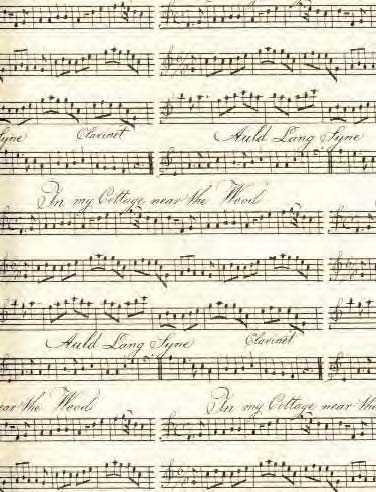 Syne Clarinet Auld Lang Syne
In my Cottage near the Wood
Auld Lang Syne Clarinet
near the Wood In my Cottage near the